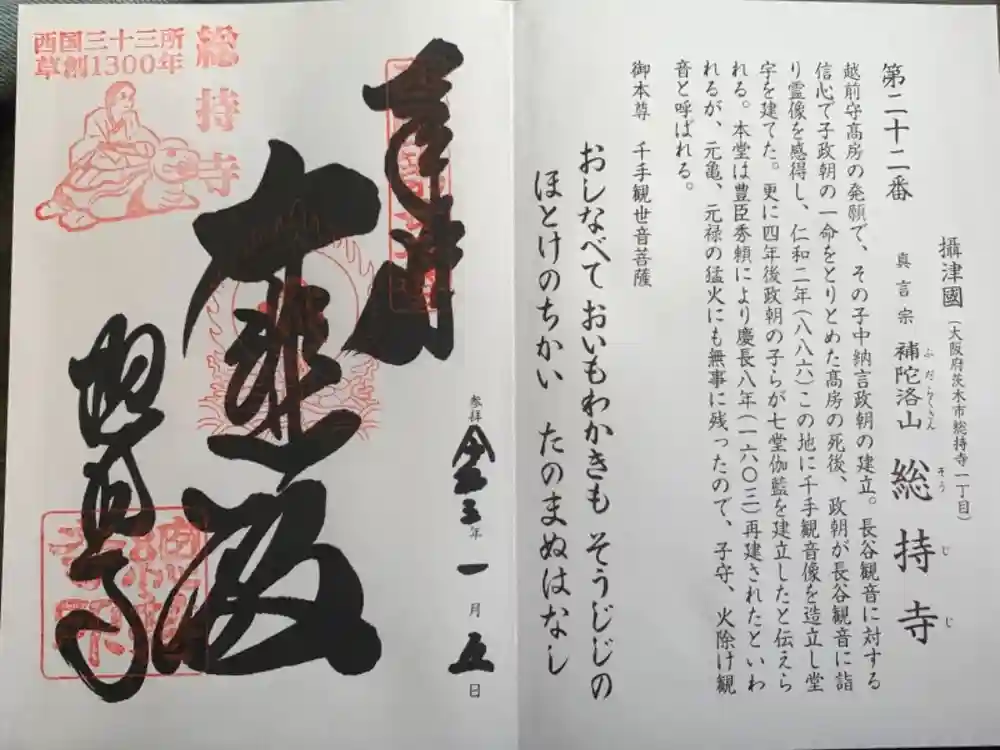 攝津國（大阪府茨木市総持寺一丁目）
第二十二番　真言宗　補陀洛山　総持寺
ふだらくさん　そうじじ
越前守高房の発願で、その子中納言政朝の建立。長谷観音に対する
信心で子政朝の一命をとりとめた高房の死後、政朝が長谷観音に詣
り霊像を感得し、仁和二年（八八六）この地に千手観音像を造立し堂
宇を建てた。更に四年後政朝の子らが七堂伽藍を建立したと伝えら
れる。本堂は豊臣秀頼により慶長八年（一六〇三）再建されたといわ
れるが、元亀、元禄の猛火にも無事に残ったので、子守、火除け観
音と呼ばれる。
御本尊　千手観世音菩薩
おしなべて おいもわかきも そうじじの
ほとけのちかい　たのまぬはなし
参拝 令和三年 一月 五日
奉拝
大悲殿
総持寺
総持寺
西国三十三所
草創1300年